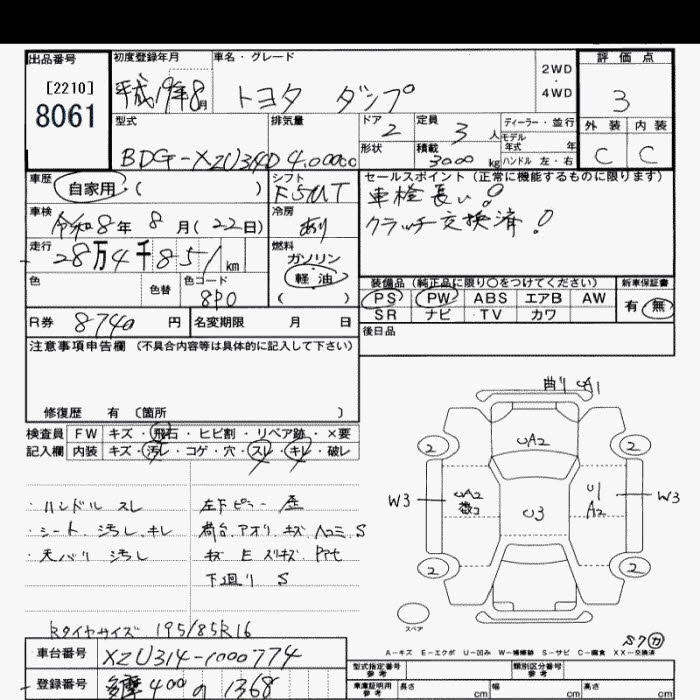 出品番号 初度登録年月 車名・グレード 2WD ・ 4WD 評価点
[2210]
8061
平成19年8月 トヨタ ダンプ 3
型式 排気量 ドア 2 定員 3人 ディーラー・並行
モデル年式 年
外装 内装
BDG-XZU314D 4,000cc 形状 積載 3000kg ハンドル 左・右 C C
車歴 自家用・( ) シフト F5MT セールスポイント(正常に機能するものに限ります)
車検長い!
車検 令和8年8月(22日) 冷房 あり クラッチ交換済!
走行 28万4千851km 燃料 ガソリン
軽・油
( )
色 色替 色コード 8P0
装備品(純正品に限り○をつけてください) 新車保証書
PS PW ABS エアB AW 有・無
SR ナビ TV カワ
R券 8740円 名変期限 月 日
後日品
注意事項申告欄(不具合内容等は具体的に記入して下さい)
修復歴 有 〔箇所 〕
検査員 FW キズ・飛石・ヒビ割・リペア跡・×要
記入欄 内装 キズ・汚レ・コゲ・穴・スレ・キレ・破レ
・ハンドル スレ
・シート 汚レ キレ
・天バリ 汚レ
左下ピラー 歪
荷台、アオリ キズ ヘコミ S
キズ E スリキズ
下廻り S
曲り UA1
2 UA2 2
W3 UA2 U3 U1 A2 W3
2 2
スペア
タイヤサイズ 195/85R16
S7
A-キズ E-エクボ U-凹み W-補修跡 S-サビ C-腐食 XX-交換済
車台番号 XZU314-1000774
型式指定番号 参考 類別区分番号 参考
登録番号 多摩400 の 1368
車庫証明用 参考 長さ cm 幅 cm 高さ cm